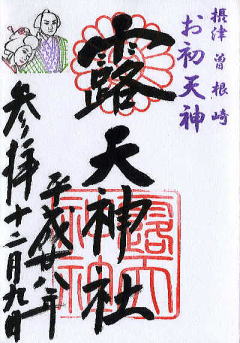 摂津 曽根崎
お初天神
露天神社
平成廿八年
参拝十二月九日
露天
神社